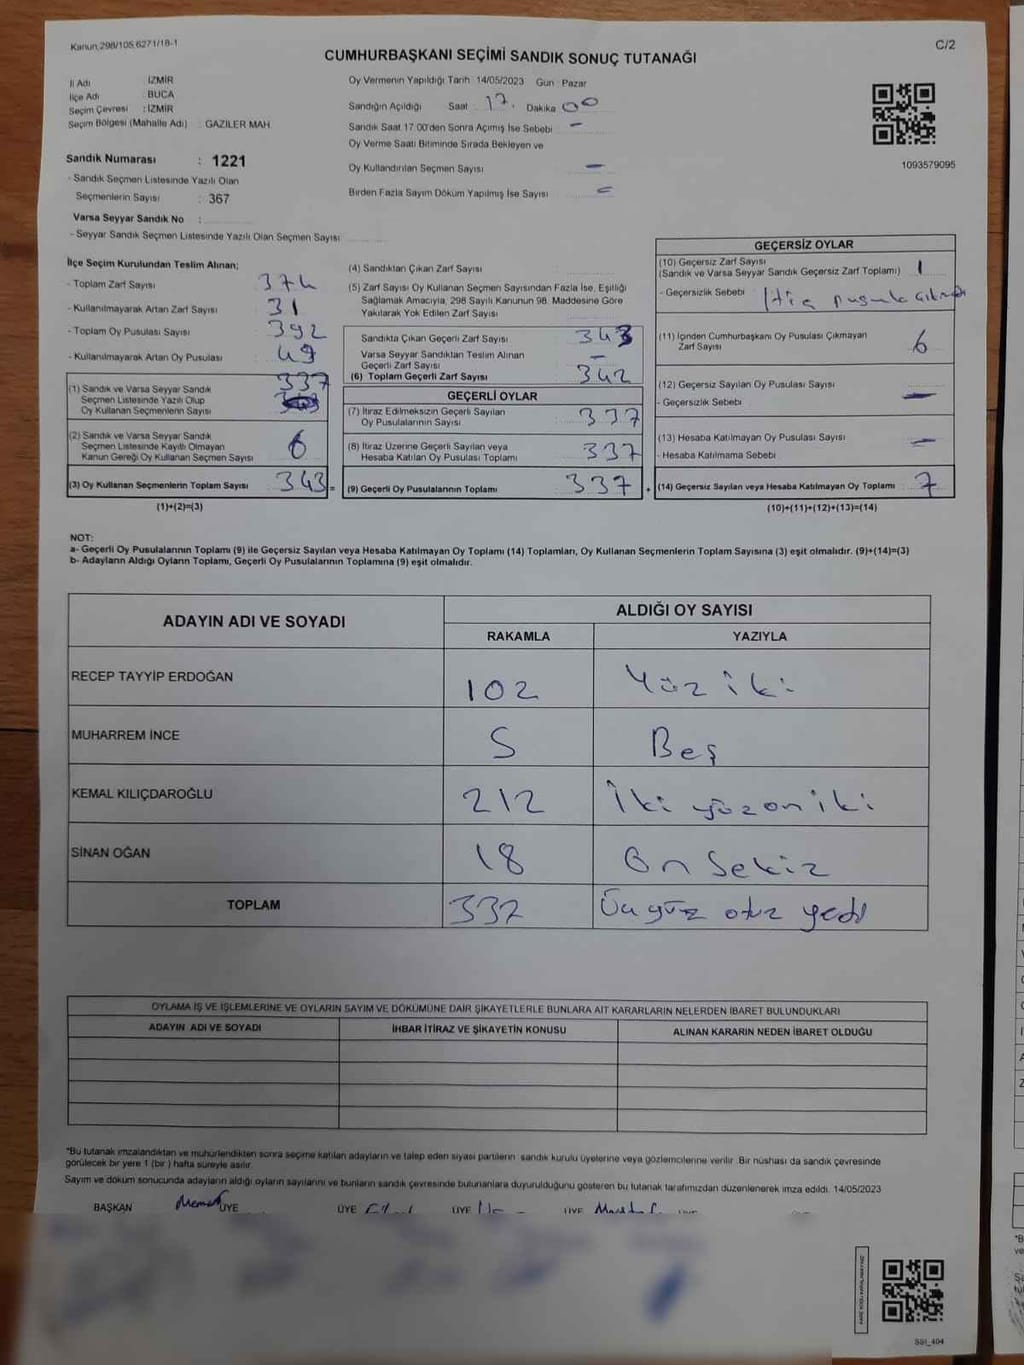 Kanun,298/105,6271/18-1
C/2
CUMHURBAŞKANI SEÇİMİ SANDIK SONUÇ TUTANAĞI
İl Adı : İZMİR
İlçe Adı : BUCA
Seçim Çevresi : İZMİR
Seçim Bölgesi (Mahalle Adı) : GAZİLER MAH.
Oy Vermenin Yapıldığı Tarih 14/05/2023 Gün Pazar
Sandığın Açıldığı Saat 17. Dakika 00
Sandık Saat 17:00'den Sonra Açımış İse Sebebi -
Oy Verme Saati Bitiminde Sırada Bekleyen ve
Oy Kullandırılan Seçmen Sayısı -
Birden Fazla Sayım Döküm Yapılmış İse Sayısı
1093579095
Sandık Numarası : 1221
- Sandık Seçmen Listesinde Yazılı Olan
Seçmenlerin Sayısı : 367
Varsa Seyyar Sandık No :
- Seyyar Sandık Seçmen Listesinde Yazılı Olan Seçmen Sayısı
İlçe Seçim Kurulundan Teslim Alınan;
- Toplam Zarf Sayısı 374
- Kullanılmayarak Artan Zarf Sayısı 31
- Toplam Oy Pusulası Sayısı 392
- Kullanılmayarak Artan Oy Pusulası 49
(1) Sandık ve Varsa Seyyar Sandık 337
Seçmen Listesinde Yazılı Olup
Oy Kullanan Seçmenlerin Sayısı
(2) Sandık ve Varsa Seyyar Sandık
Seçmen Listesinde Kayıtlı Olmayan 6
Kanun Gereği Oy Kullanan Seçmen Sayısı
(3) Oy Kullanan Seçmenlerin Toplam Sayısı 343
(1)+(2)=(3)
(4) Sandıktan Çıkan Zarf Sayısı
(5) Zarf Sayısı Oy Kullanan Seçmen Sayısından Fazla İse, Eşitliği
Sağlamak Amacıyla, 298 Sayılı Kanunun 98. Maddesine Göre
Yakılarak Yok Edilen Zarf Sayısı
Sandıkta Çıkan Geçerli Zarf Sayısı 343
Varsa Seyyar Sandıktan Teslim Alınan
Geçerli Zarf Sayısı -
(6) Toplam Geçerli Zarf Sayısı 342
GEÇERLİ OYLAR
(7) İtiraz Edilmeksizin Geçerli Sayılan
Oy Pusulalarının Sayısı 337
(8) İtiraz Üzerine Geçerli Sayılan veya
Hesaba Katılan Oy Pusulası Toplamı 337
(9) Geçerli Oy Pusulalarının Toplamı 337
GEÇERSİZ OYLAR
(10) Geçersiz Zarf Sayısı
(Sandık ve Varsa Seyyar Sandık Geçersiz Zarf Toplamı) 1
- Geçersizlik Sebebi
(11) İçinden Cumhurbaşkanı Oy Pusulası Çıkmayan
Zarf Sayısı 6
(12) Geçersiz Sayılan Oy Pusulası Sayısı
- Geçersizlik Sebebi -
(13) Hesaba Katılmayan Oy Pusulası Sayısı -
- Hesaba Katılmama Sebebi
(14) Geçersiz Sayılan veya Hesaba Katılmayan Oy Toplamı 7
(10)+(11)+(12)+(13)=(14)
NOT:
a- Geçerli Oy Pusulalarının Toplamı (9) ile Geçersiz Sayılan veya Hesaba Katılmayan Oy Toplamı (14) Toplamları, Oy Kullanan Seçmenlerin Toplam Sayısına (3) eşit olmalıdır. (9)+(14)=(3)
b- Adayların Aldığı Oyların Toplamı, Geçerli Oy Pusulalarının Toplamına (9) eşit olmalıdır.
ADAYIN ADI VE SOYADI
ALDIĞI OY SAYISI
RAKAMLA YAZIYLA
RECEP TAYYİP ERDOĞAN 102 Yüz iki
MUHARREM İNCE 5 Beş
KEMAL KILIÇDAROĞLU 212 İki yüzoniki
SİNAN OĞAN 18 On Sekiz
TOPLAM 337 Üçyüz otuz yedi
OYLAMA İŞ VE İŞLEMLERİNE VE OYLARIN SAYIM VE DÖKÜMÜNE DAİR ŞİKAYETLERLE BUNLARA AİT KARARLARIN NELERDEN İBARET BULUNDUKLARI
ADAYIN ADI VE SOYADI İHBAR İTİRAZ VE ŞİKAYETİN KONUSU ALINAN KARARIN NEDEN İBARET OLDUĞU
*Bu tutanak imzalandıktan ve mühürlendikten sonra seçime katılan adayların ve talep eden siyasi partilerin sandık kurulu üyelerine veya gözlemcilerine verilir. Bir nüshası da sandık çevresinde
görülecek bir yere 1 (bir) hafta süreyle asılır.
Sayım ve döküm sonucunda adayların aldığı oyların sayılarını ve bunların sandık çevresinde bulunanlara duyurulduğunu gösteren bu tutanak tarafımızdan düzenlenerek imza edildi. 14/05/2023
BAŞKAN ÜYE ÜYE ÜYE ÜYE ÜYE
SSI_404